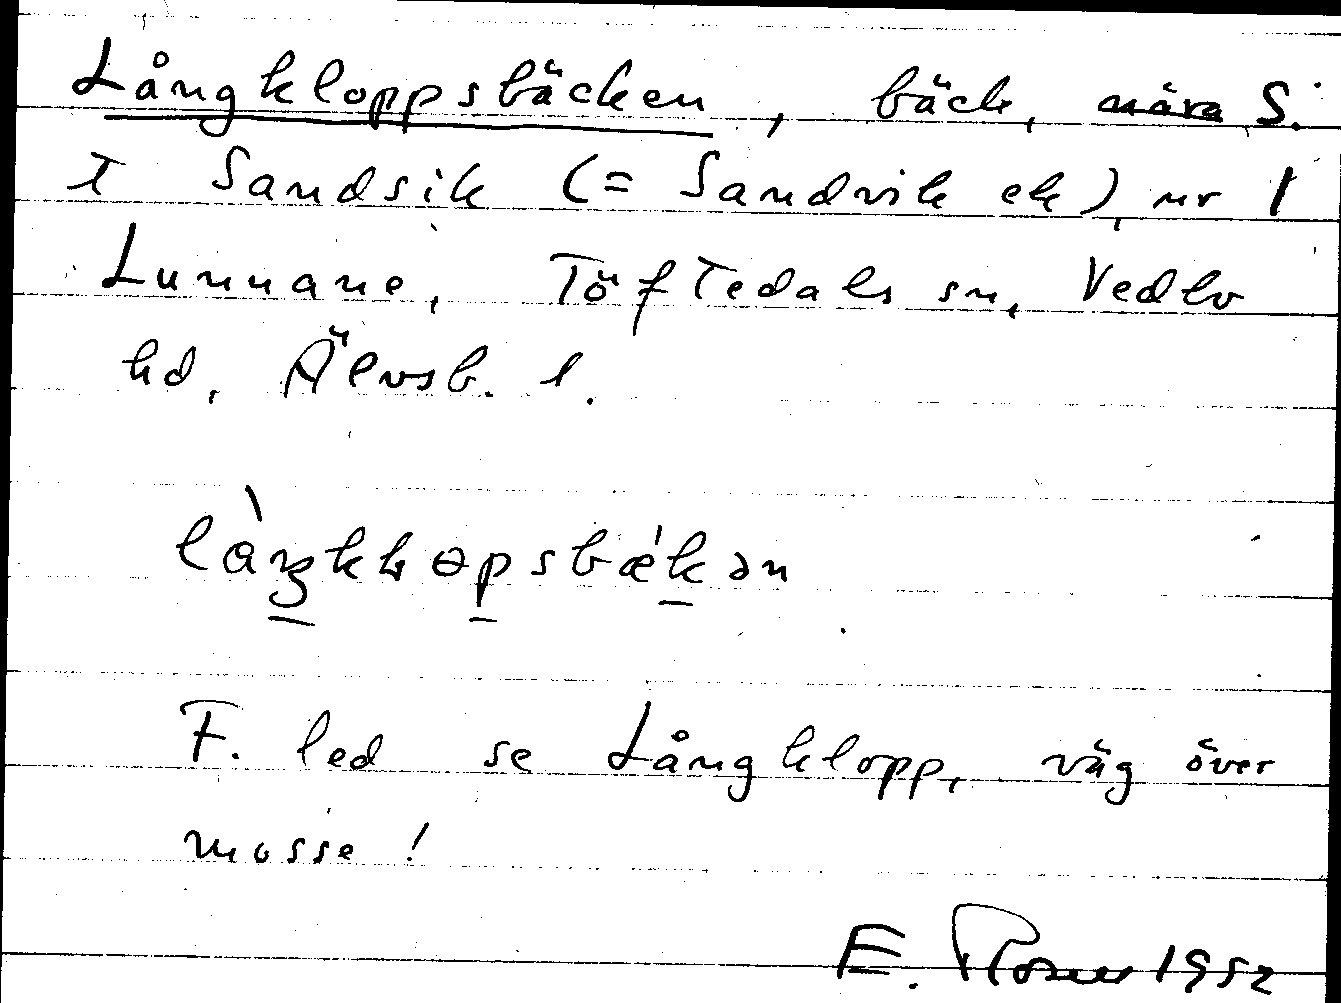 Långkloppsbäcken, bäck, nära S.
T Sandsik (= Sandvik ek), nr 1
Lunnane, Töftedals sn, Vedbo
hd, Älvsb. l.
F. led se Långklopp, väg över
mosse!
E. 1952